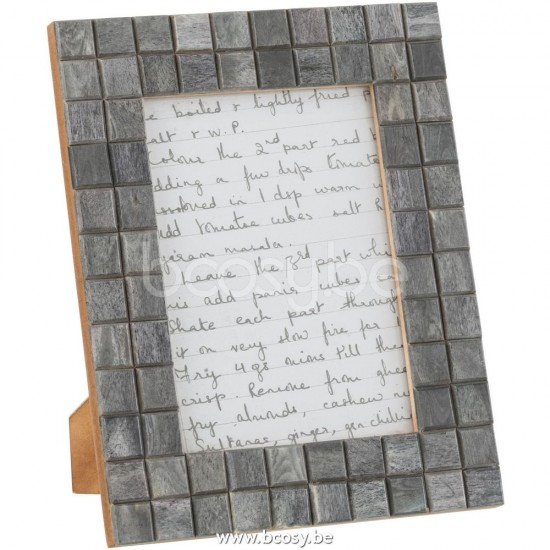 be boiled & lightly fried
salt & W.P.
Colour the 2nd part red
adding a few drps tomatoe
dissolved in 1 dsp warm
add tomatoe cubes salt
garam masala.
leave the 3rd part whi
add paris cubes
bcosy.be
Shake each part through
it on very slow fire for
Fry 4 gs onions till the
crisp. Remove from ghee
fry almonds, cashew nu
Sultanas, ginger, gen chillies
www.bcosy.be
www.bcosy.be